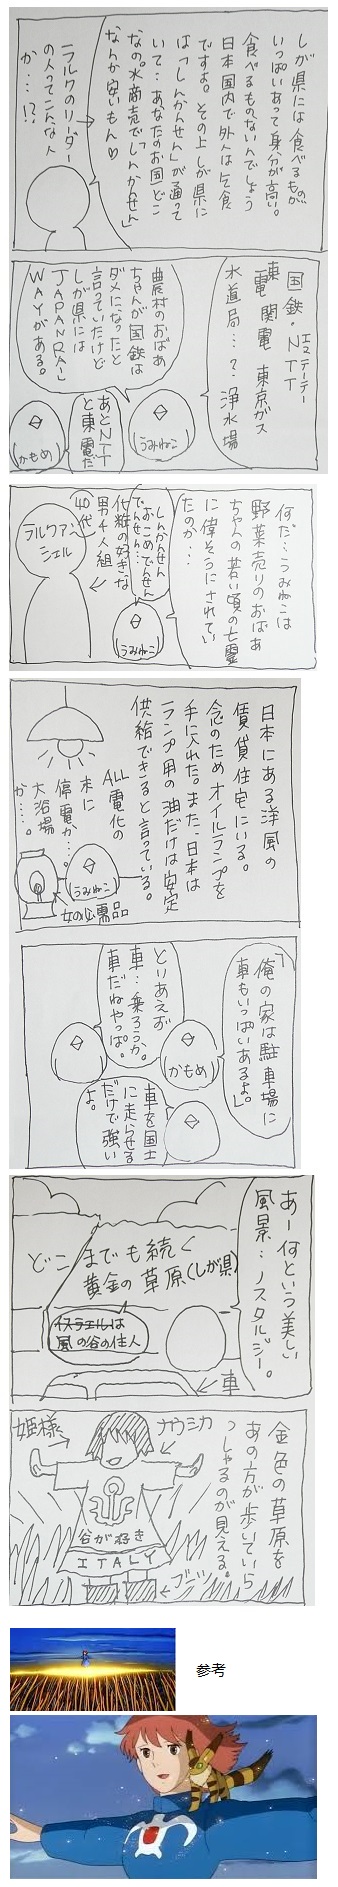 しが県には食べるものが
いっぱいあって身分が高い。
食べるものないんでしょう
日本国内で外人は乞食
ですよ。その上しが県に
は「しんかんせん」が通って
いて…あなたのお国どこ
なの。水商売で「しんかんせん」
なんか安いもん♡
ラルクのリーダー
の人ってこんな人
か…!?
国鉄・NTT
エヌテーテー
東電 関電 東京ガス
水道局…?…浄水場
農村のおばあ
ちゃんが国鉄は
ダメになったと
言っていたけど
しが県には
JAPAN RAIL
WAYがある。
(うみねこ)
あとNTT
と東電だ
(かもめ)
何だ…うみねこは
野菜売りのおばあ
ちゃんの若い頃の亡霊
に偉そうにされてい
たのか…
しんかんせん
おこめでんせん
でんせん…
(うみねこ)
化粧の好きな
男4人組
40代
ラルクアン
シエル
日本にある洋風の
賃貸住宅にいる。
念のためオイルランプを
手に入れた。また、日本は
ランプ用の油だけは安定
供給できると言っている。
ALL電化の
末に
停電か…。
大浴場
か…。
(うみねこ)
女の必需品
「俺の家は駐車場に
車もいっぱいあるよ。」
(かもめ)
とりあえず
車…乗ろうか。
車だねやっぱ。
車を国土
に走らせる
だけで強い
よ。
あー何という美しい
風景…ノスタルジー。
どこまでも続く
黄金の草原(しが県)
イスラエルは
風の谷の住人
車
金色の草原を
あの方が歩いていら
っしゃるのが見える。
姫様
ナウシカ
谷が好き
ITALY
ブーツ
参考